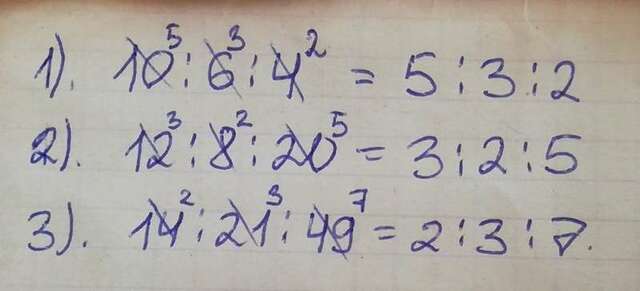 1). 10⁵ : 6³ : 4² = 5 : 3 : 2
2). 12³ : 8² : 20⁵ = 3 : 2 : 5
3). 14² : 21³ : 49⁷ = 2 : 3 : 7.